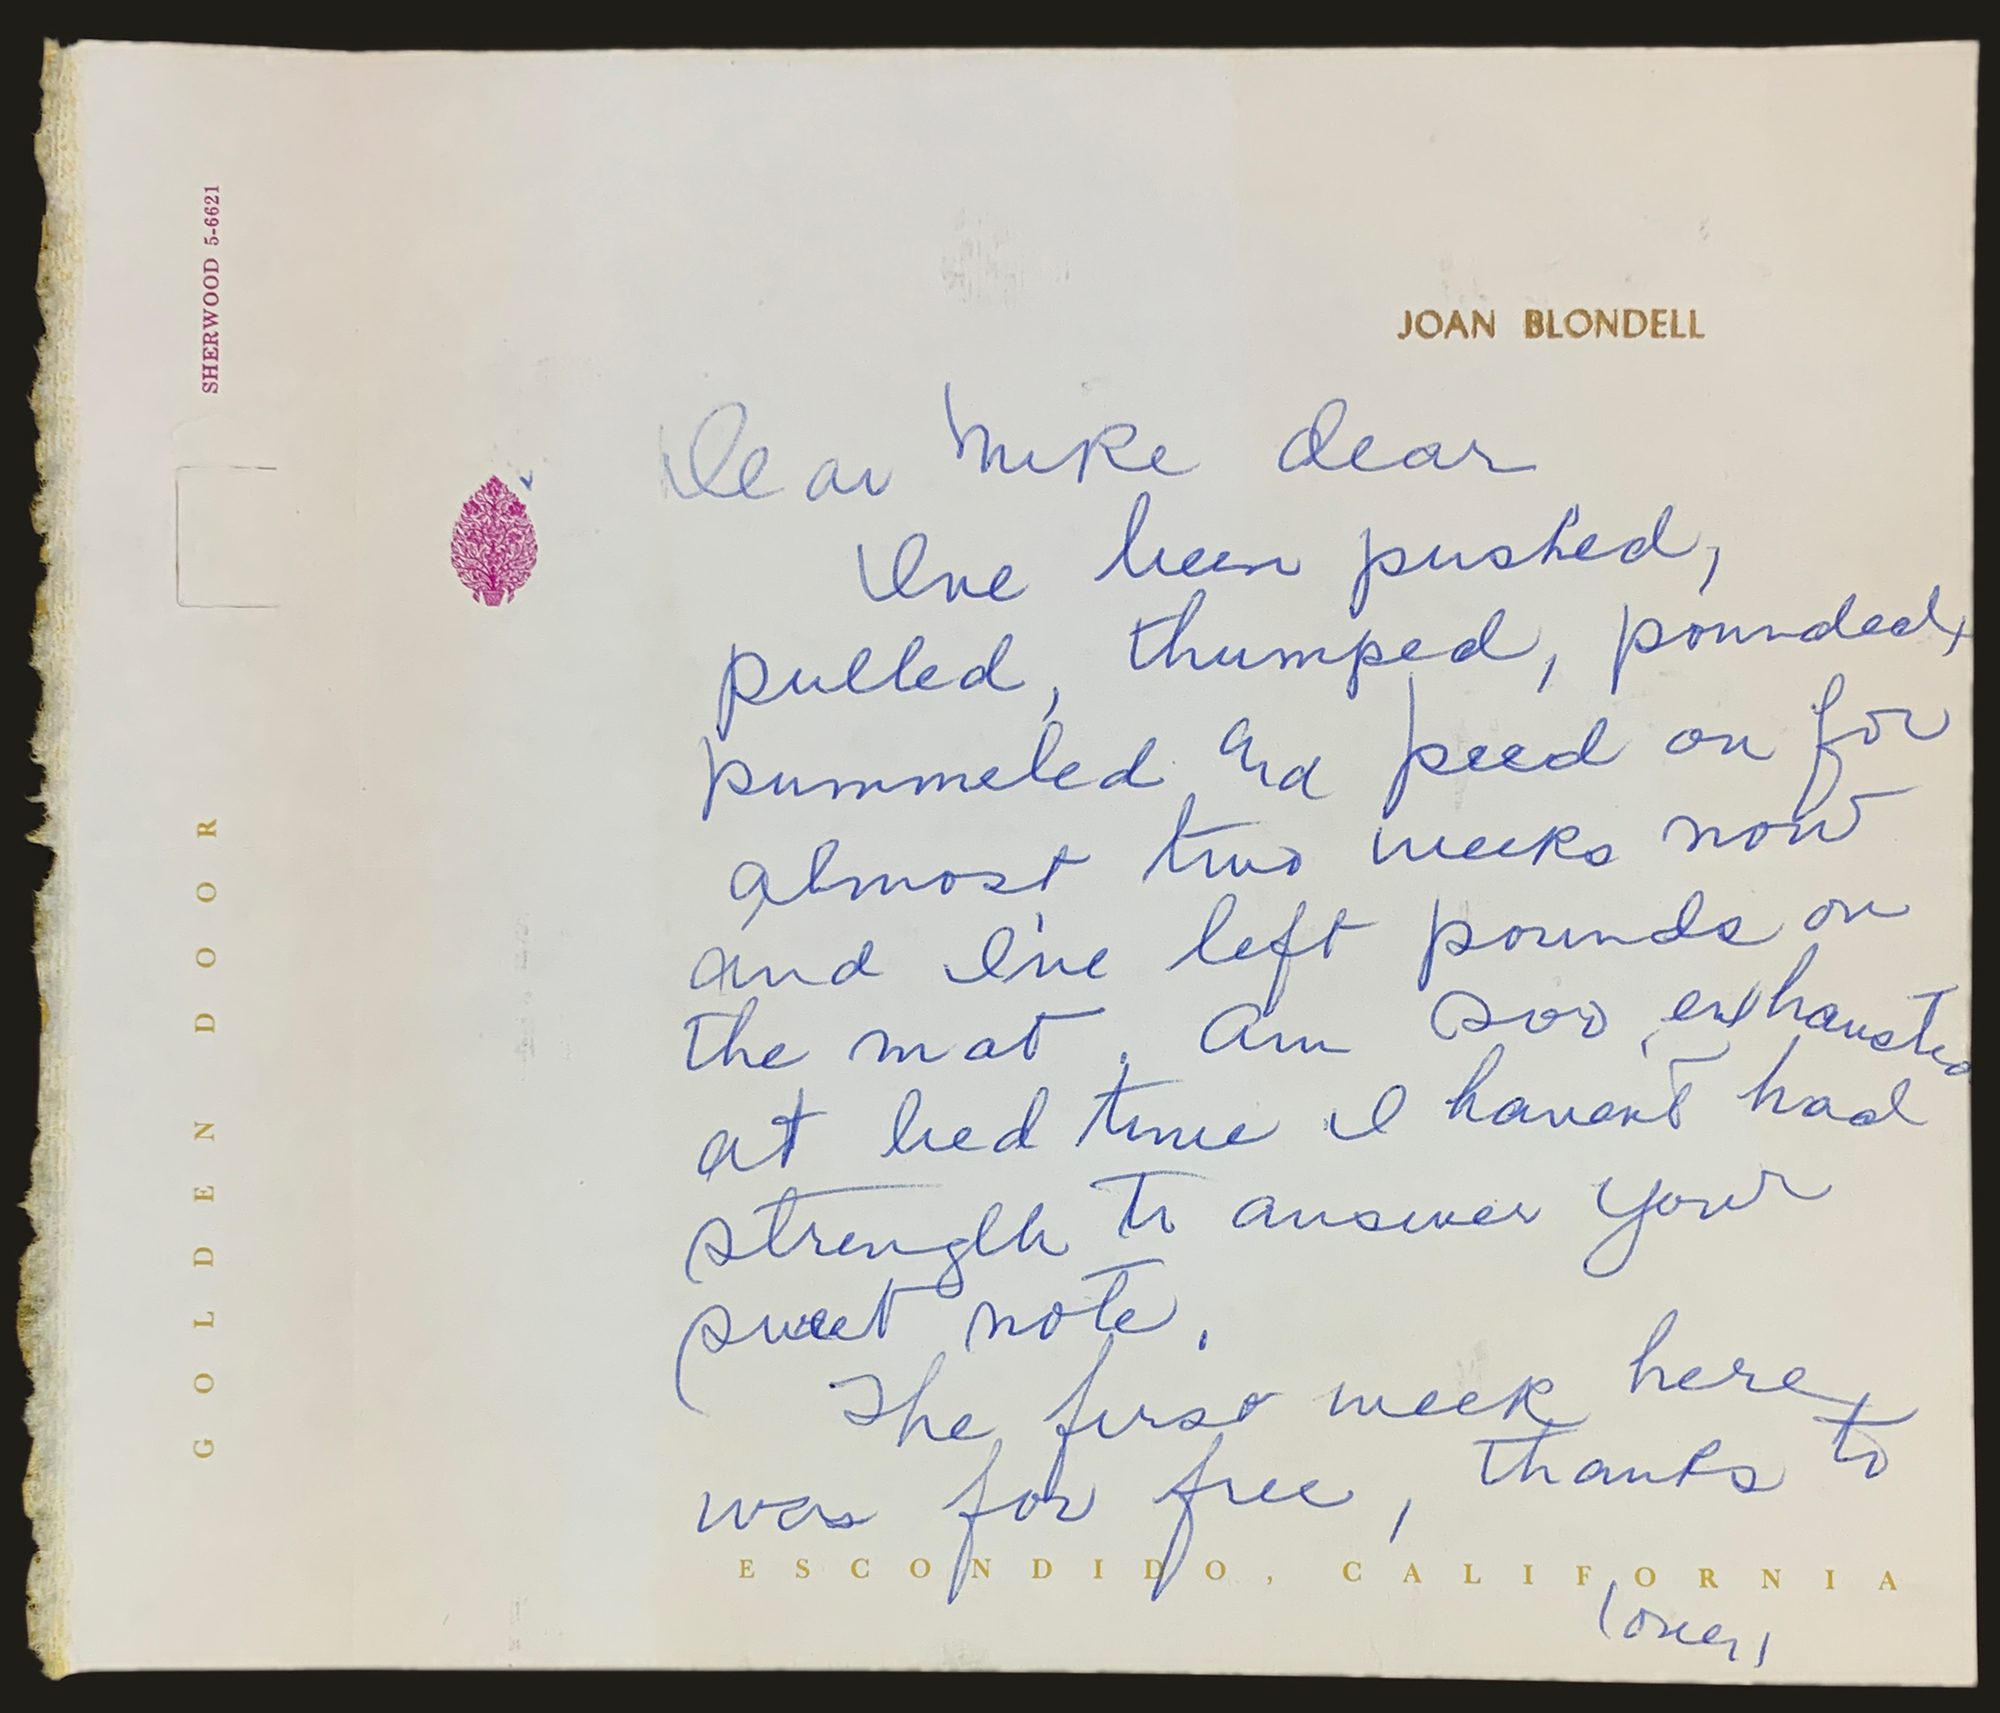 SHERWOOD 5-6621
GOLDEN DOOR
JOAN BLONDELL
Dear Mike dear
I've been pushed,
pulled, thumped, pounded,
pummeled and peed on for
almost two weeks now
and I've left pounds on
the mat. Am soo exhausted
at bed time I haven't had
strength to answer your
sweet note.
The first week here,
was for free, thanks to
ESCONDIDO, CALIFORNIA
(over)